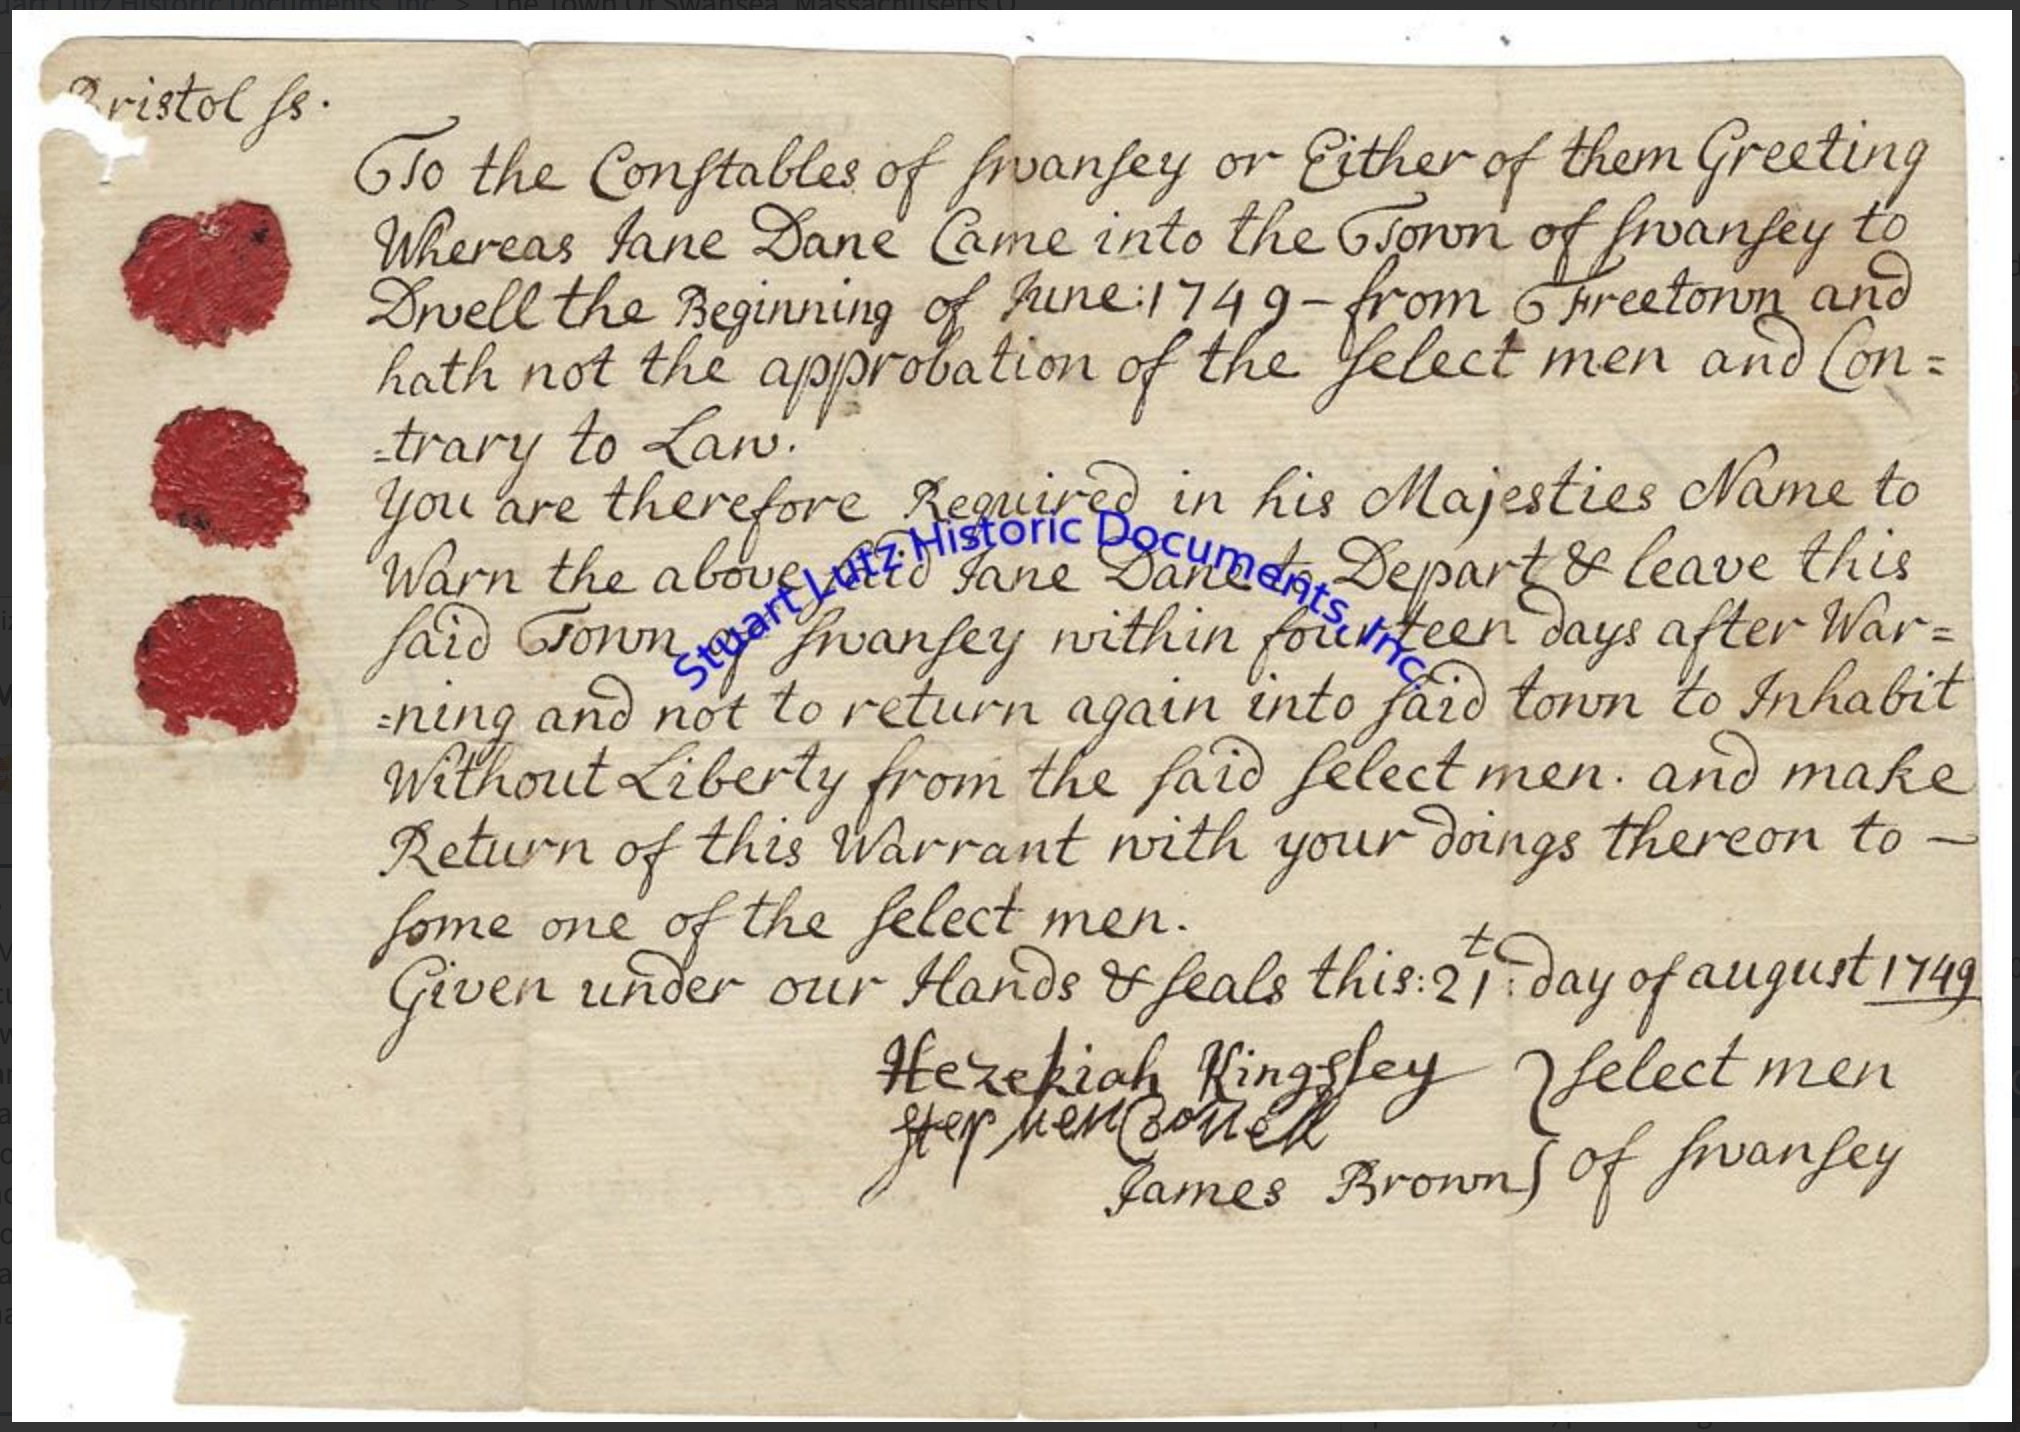 Bristol ss.
To the Constables of Swansey or Either of them Greeting
Whereas Jane Dane Came into the Town of Swansey to
Dwell the Beginning of June:1749 - from Freetown and
hath not the approbation of the Select men and Con=
=trary to Law.
You are therefore Required in his Majesties Name to
Warn the above said Jane Dane to Depart & leave this
said Town of Swansey within fourteen days after War=
=ning and not to return again into said town to Inhabit
Without Liberty from the said Select men. and make
Return of this Warrant with your doings thereon to —
some one of the Select men.
Given under our Hands & seals this: 21t: day of august 1749
Hezekiah Kingsley
Stephen
James Brown
} Select men
of Swansey
Stuart Lutz Historic Documents, Inc.